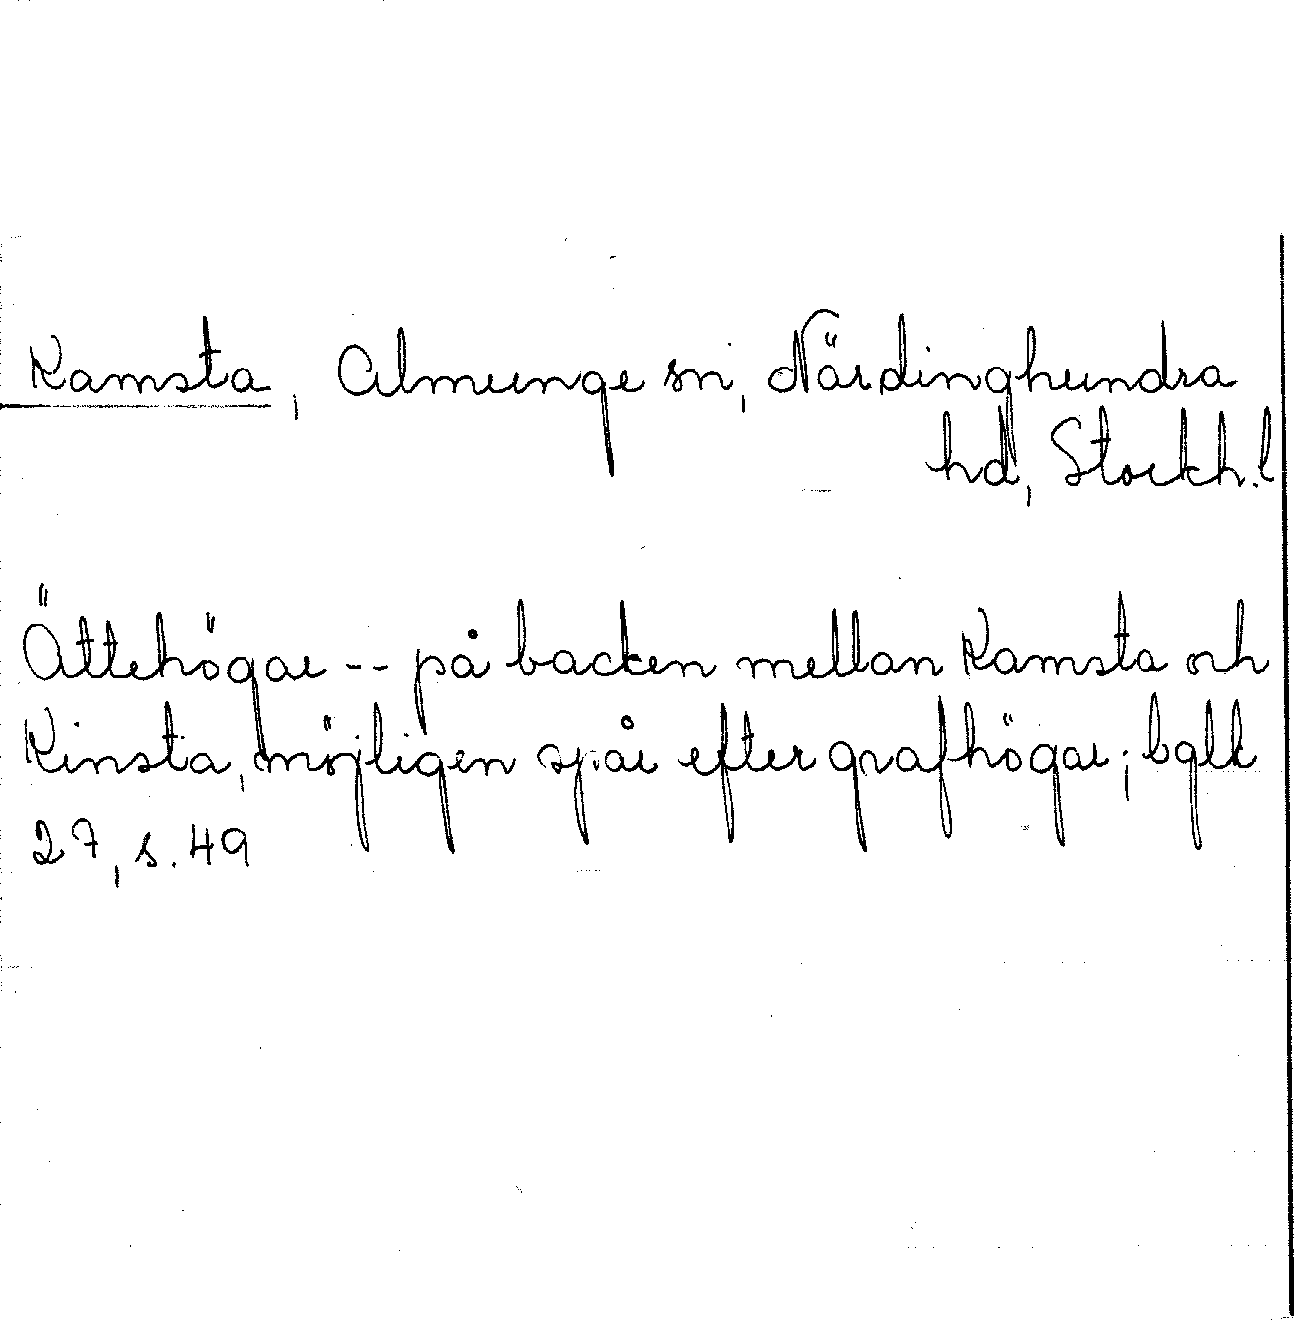 Kamsta, Almunge sn, Närdinghundra
hd, Stockh. l
Ättehögar -- på backen mellan Kamsta och
Kinsta, möjligen spår efter grafhögar; bglk
27, s. 49